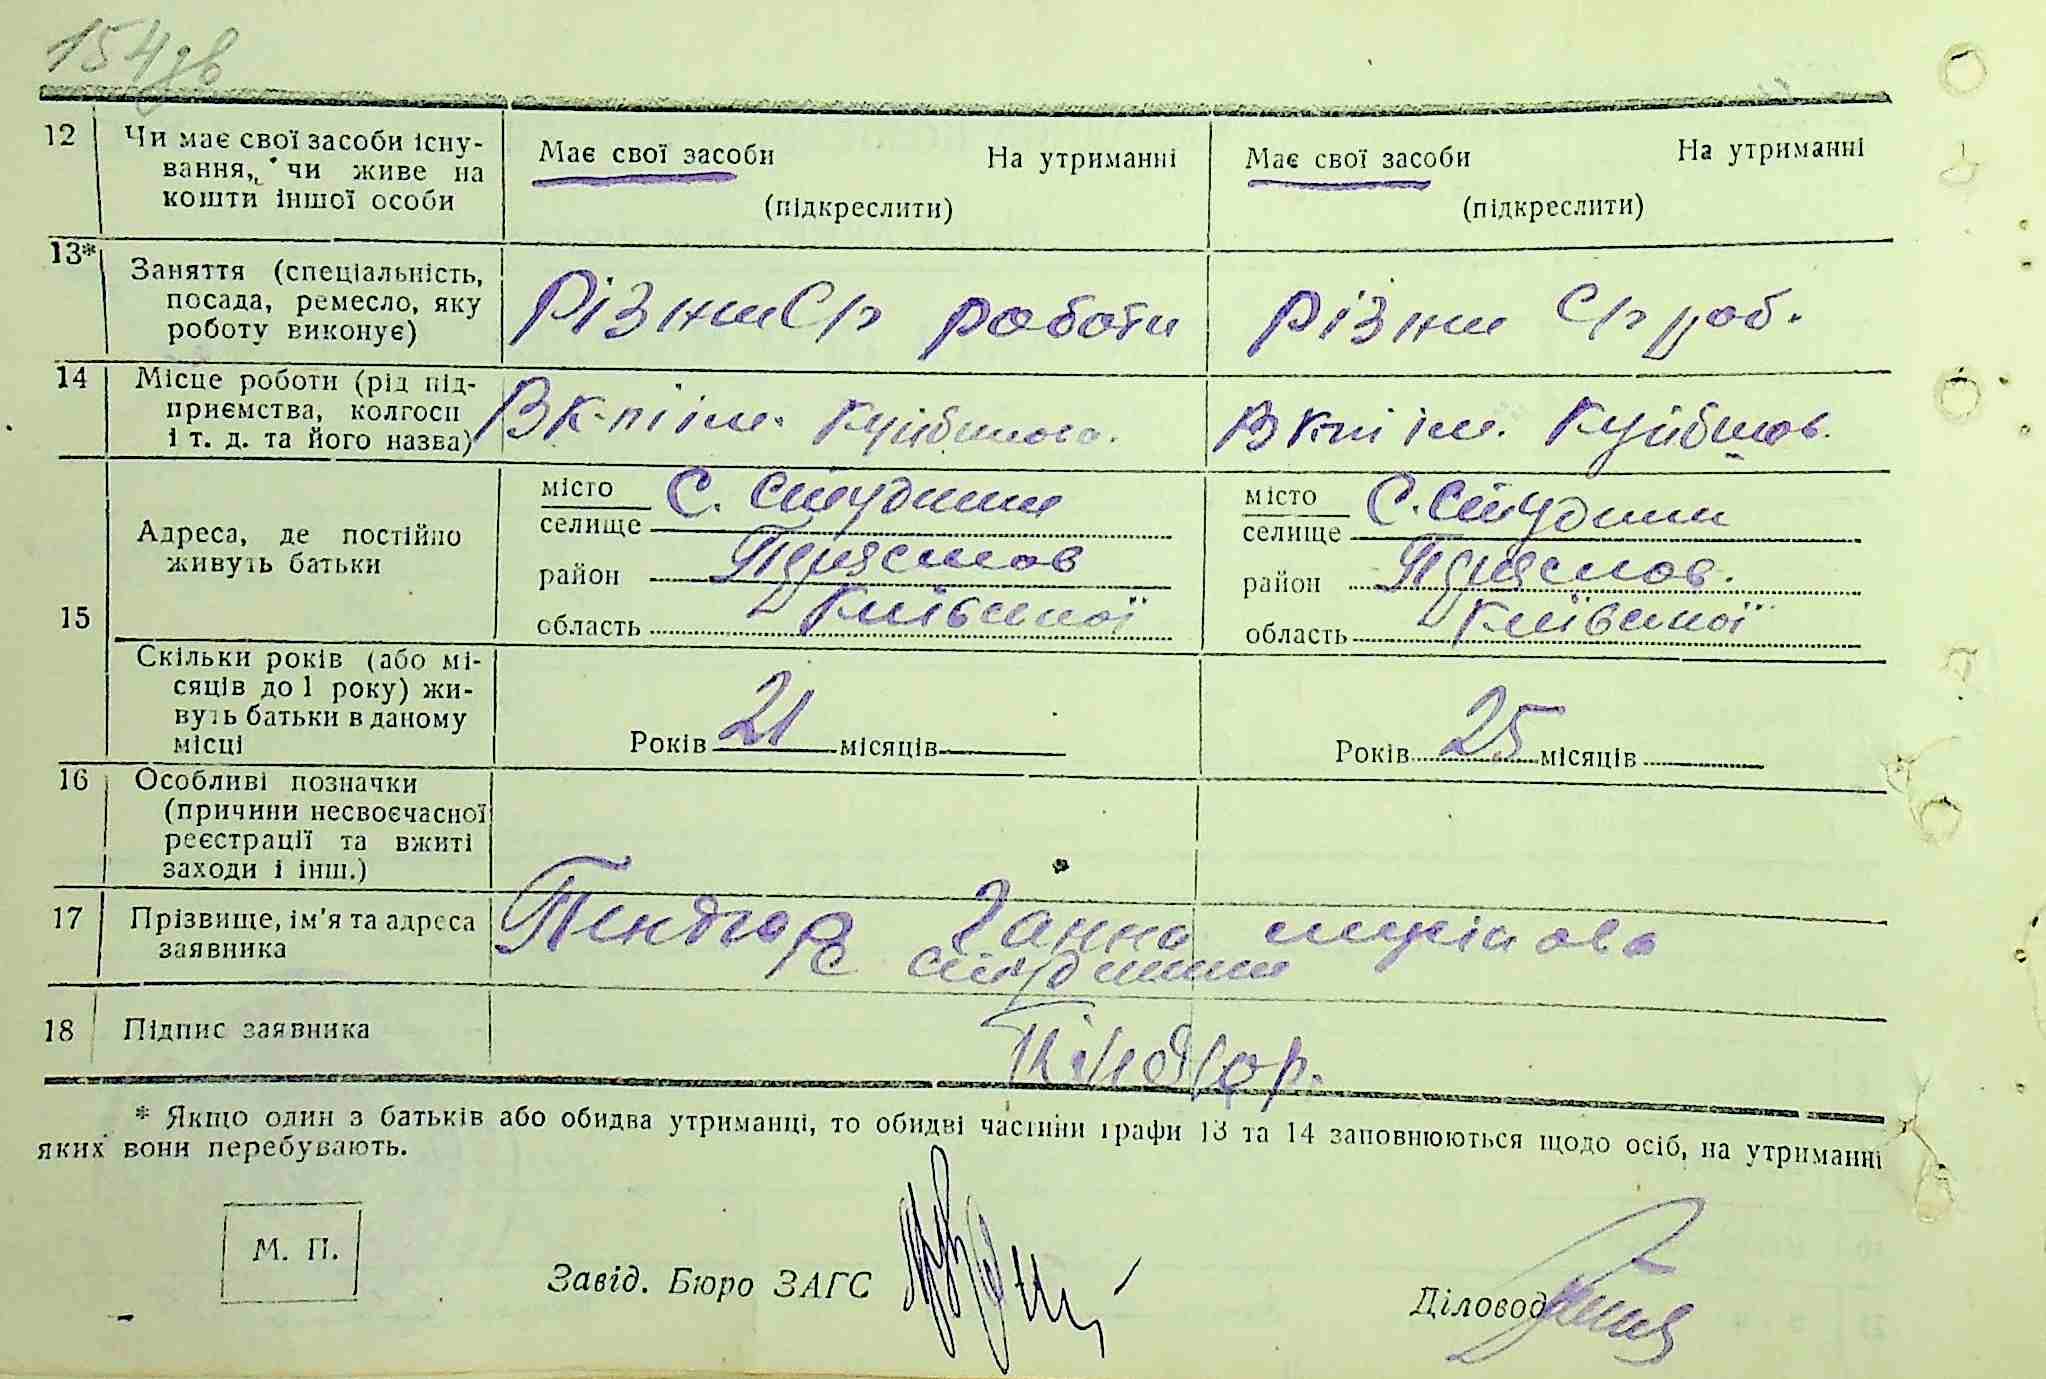 154зв
12 Чи має свої засоби існу-
вання, чи живе на
кошти іншої особи
Має свої засоби На утриманні
(підкреслити)
Має свої засоби На утриманні
(підкреслити)
13* Заняття (спеціальність,
посада, ремесло, яку
роботу виконує)
Різни С/г роботи
Різни С/г роб.
14 Місце роботи (рід під-
приємства, колгосп
і т. д. та його назва)
В к-пі ім. Куйбишого.
В к-пі ім. Куйбишов.
15 Адреса, де постійно
живуть батьки
місто
селище С. Студини
район
область Київської
місто
селище С. Студини
район
область Київської
Скільки років (або мі-
сяців до 1 року) жи-
вуть батьки в даному
місці
Років 21 місяців
Років 25 місяців
16 Особливі позначки
(причини несвоєчасної
реєстрації та вжиті
заходи і інш.)
17 Прізвище, ім'я та адреса
заявника
Пендюр Ганна
С Студини
18 Підпис заявника
* Якщо один з батьків або обидва утриманці, то обидві частини графи 13 та 14 заповнюються щодо осіб, на утриманні
яких вони перебувають.
М. П.
Завід. Бюро ЗАГС
Діловод